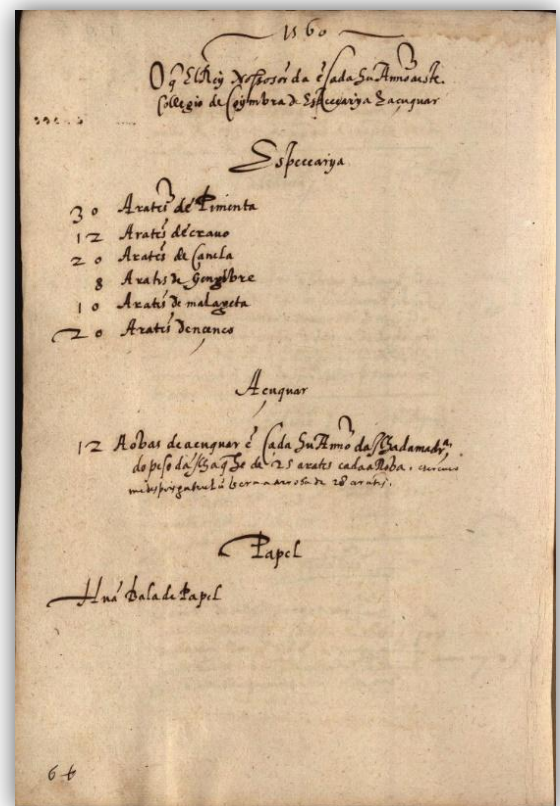 1560
O q̃ El Rey Nosso sõr da ẽ Cada hu Anno a este
Collegio de Coymbra de Especearya & açuquar
Especearya
30 Arates de Pimenta
12 Arates de crauo
20 Arates de Canela
8 Arates de Gengibre
10 Arates de malageta
20 Arates dencenço
Açuquar
12 ARobas de açuquar ẽ Cada hu Anno da Ilha da madrª
do peso da Ilha q̃ he de 25 arates cada aRoba.
a arroba de 28 arates.
Papel
Huã Bala de Papel